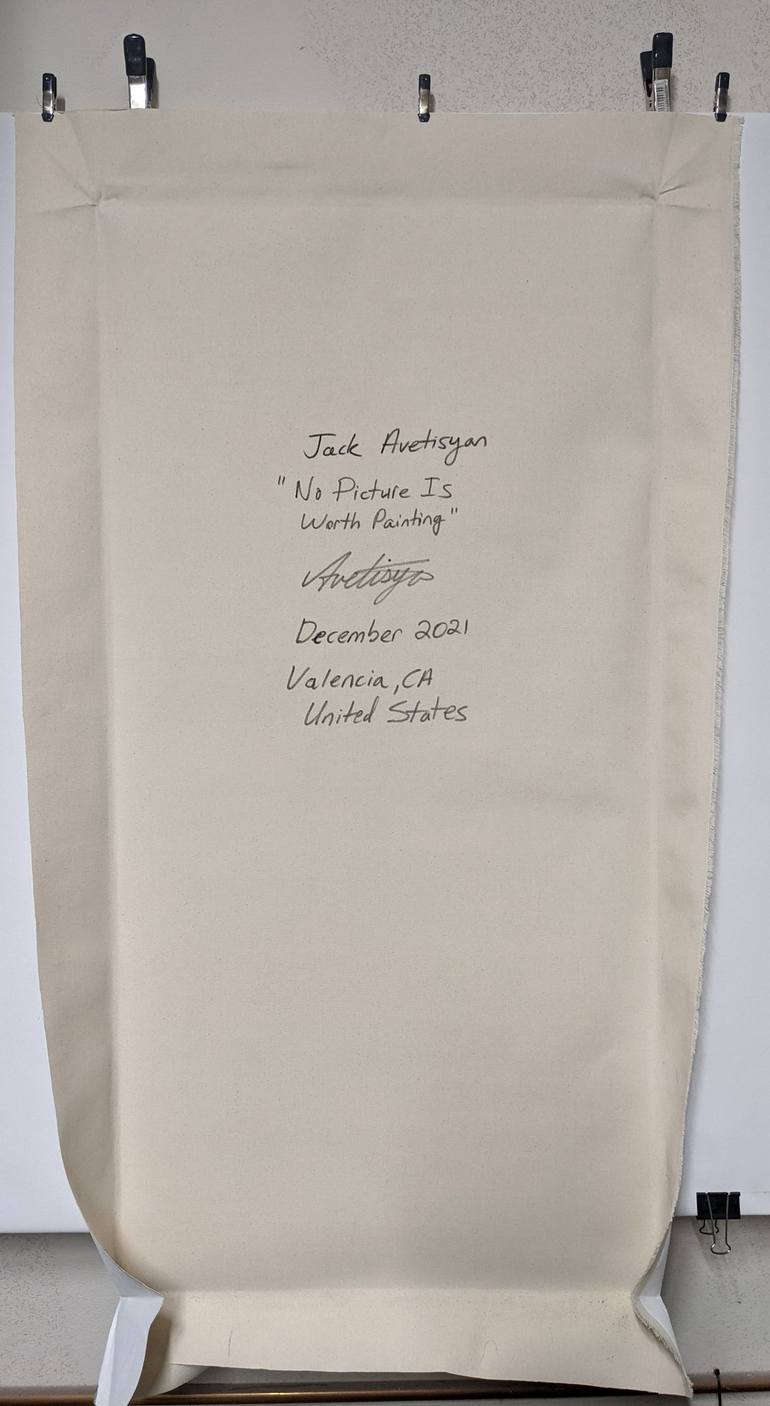 Jack Avetisyan
"No Picture Is
Worth Painting"
Avetisyan
December 2021
Valencia, CA
United States